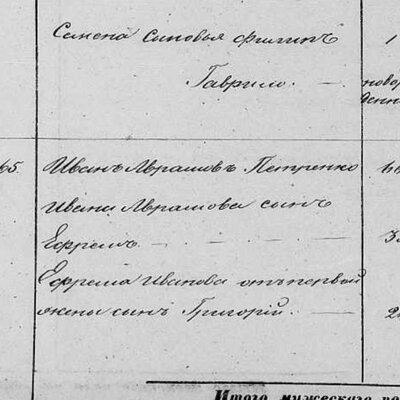 Семена сыновья Филипъ 1
Гаврило. — ново
65. Иванъ Абрамовъ Петренко
Ивана Абрамова сынъ
Ефремъ — — — — 3
Ефрема Иванова отъ первой
жены сынъ Григорій. — 2
Итого мужескаго по